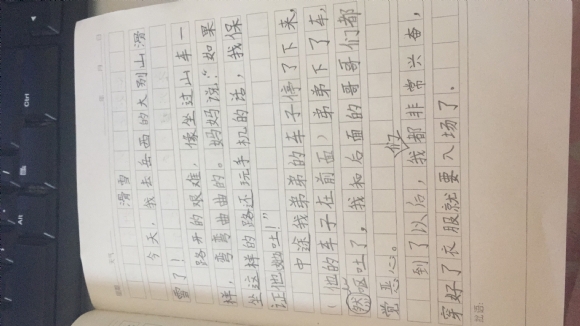 滑雪
今天，我去岳西的大别山滑
雪了！
路开的艰难，像坐过山车一
样，弯弯曲曲的。妈妈说：“如果
坐这样的路还玩手机的话，我保
证他她吐！”
中途我弟弟的车子停了下来，
（他的车子在前面）弟弟下了车，
然呕吐了。我和后面的哥哥们都
觉恶心。
到了以后，我们都非常兴奋，
穿好了衣服就要入场了。
Ctrl
Alt